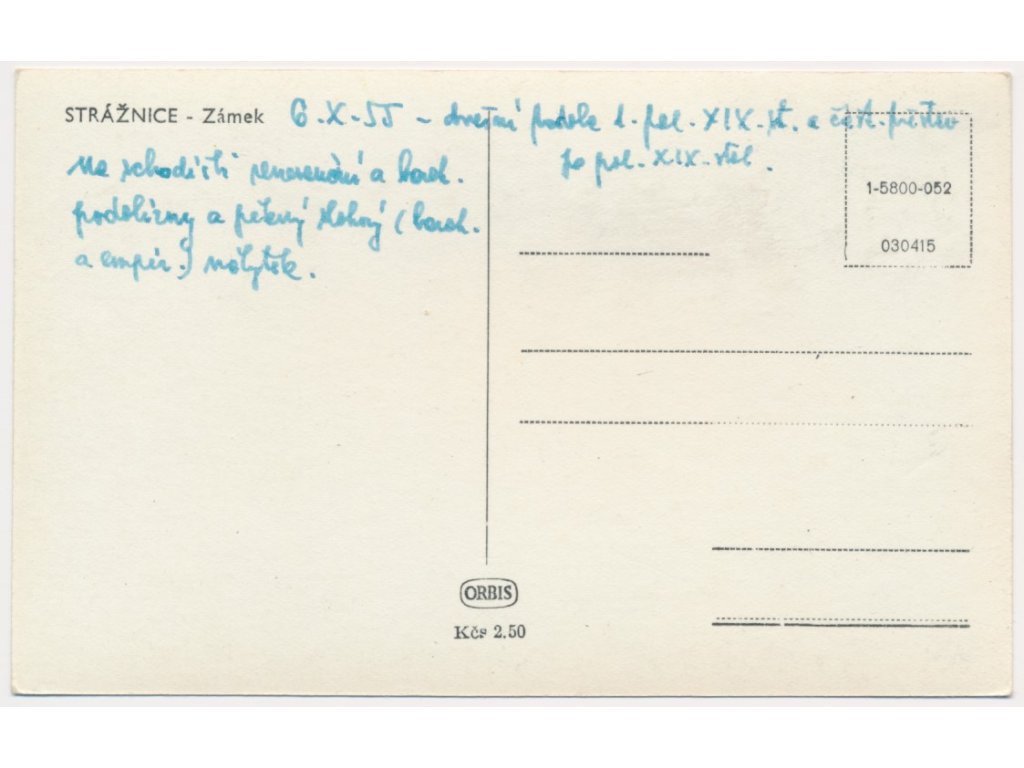 STRÁŽNICE - Zámek 6.X.55 - dnešní podoba 1. pol. XIX. st. a část.
po pol. XIX. stol.
Na schodišti renesanční a barok.
podobizny a pěkný slohový (barok.
a empír.) nábytek.
1-5800-052
030415
ORBIS
Kčs 2.50